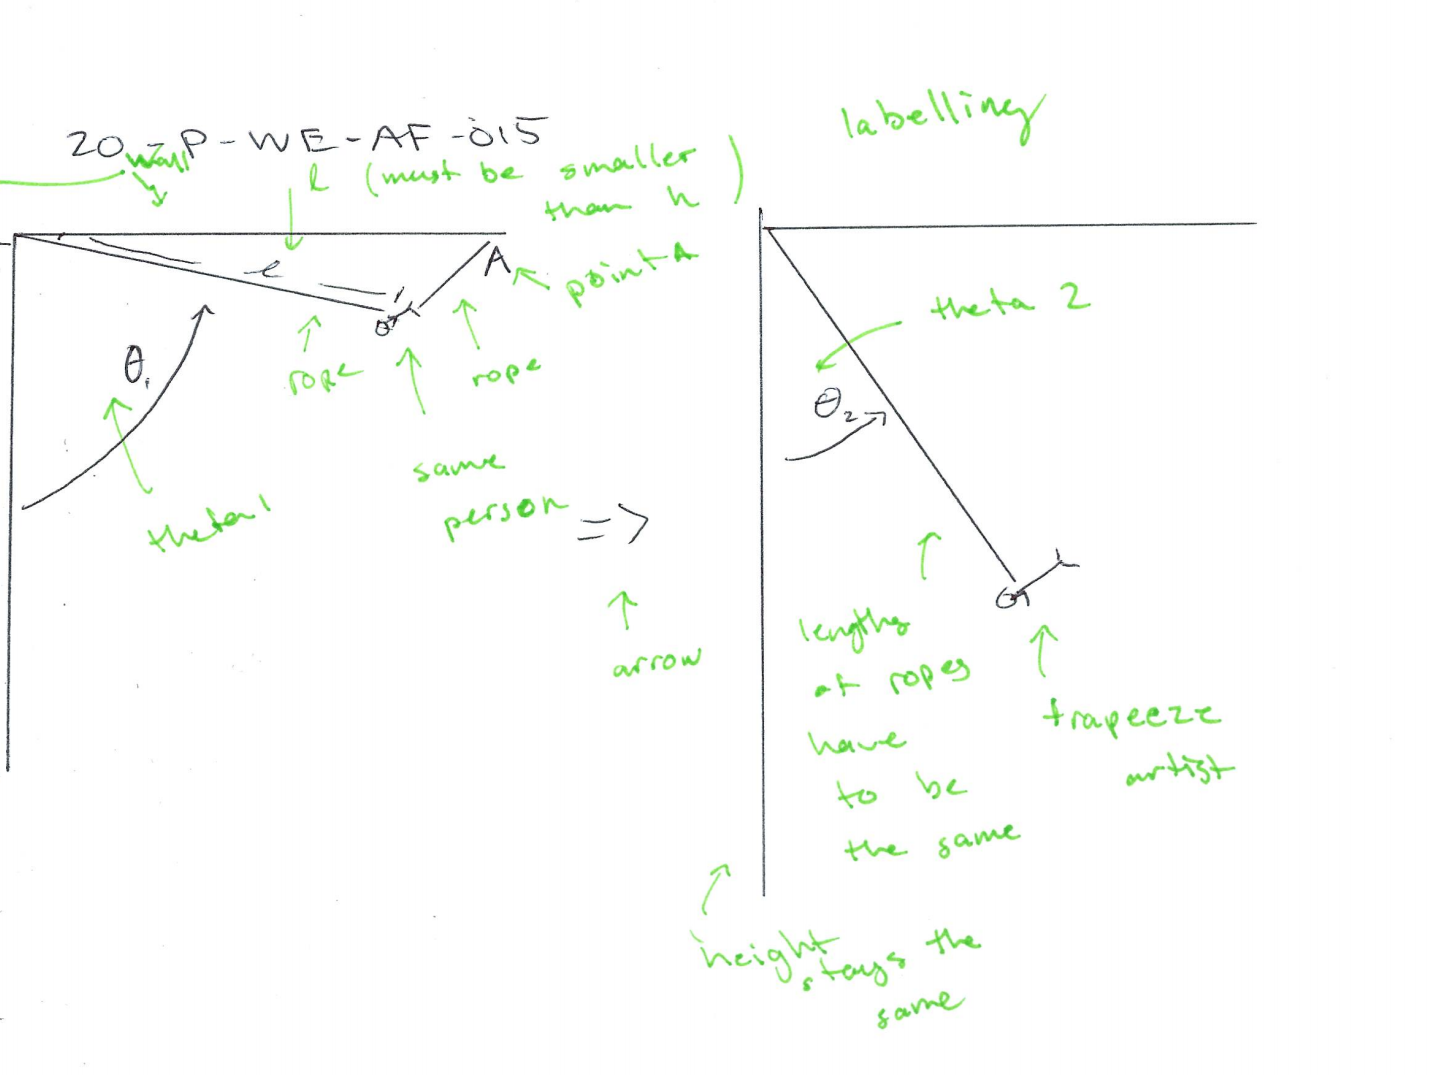 labelling
20-P-WE-AF-015
wall
l (must be smaller
than h)
l
A
point A
θ₁
rope
rope
theta 1
same
person
=>
arrow
theta 2
θ₂
lengths
of ropes
have
to be
the same
trapeeze
artist
height
stays the
same